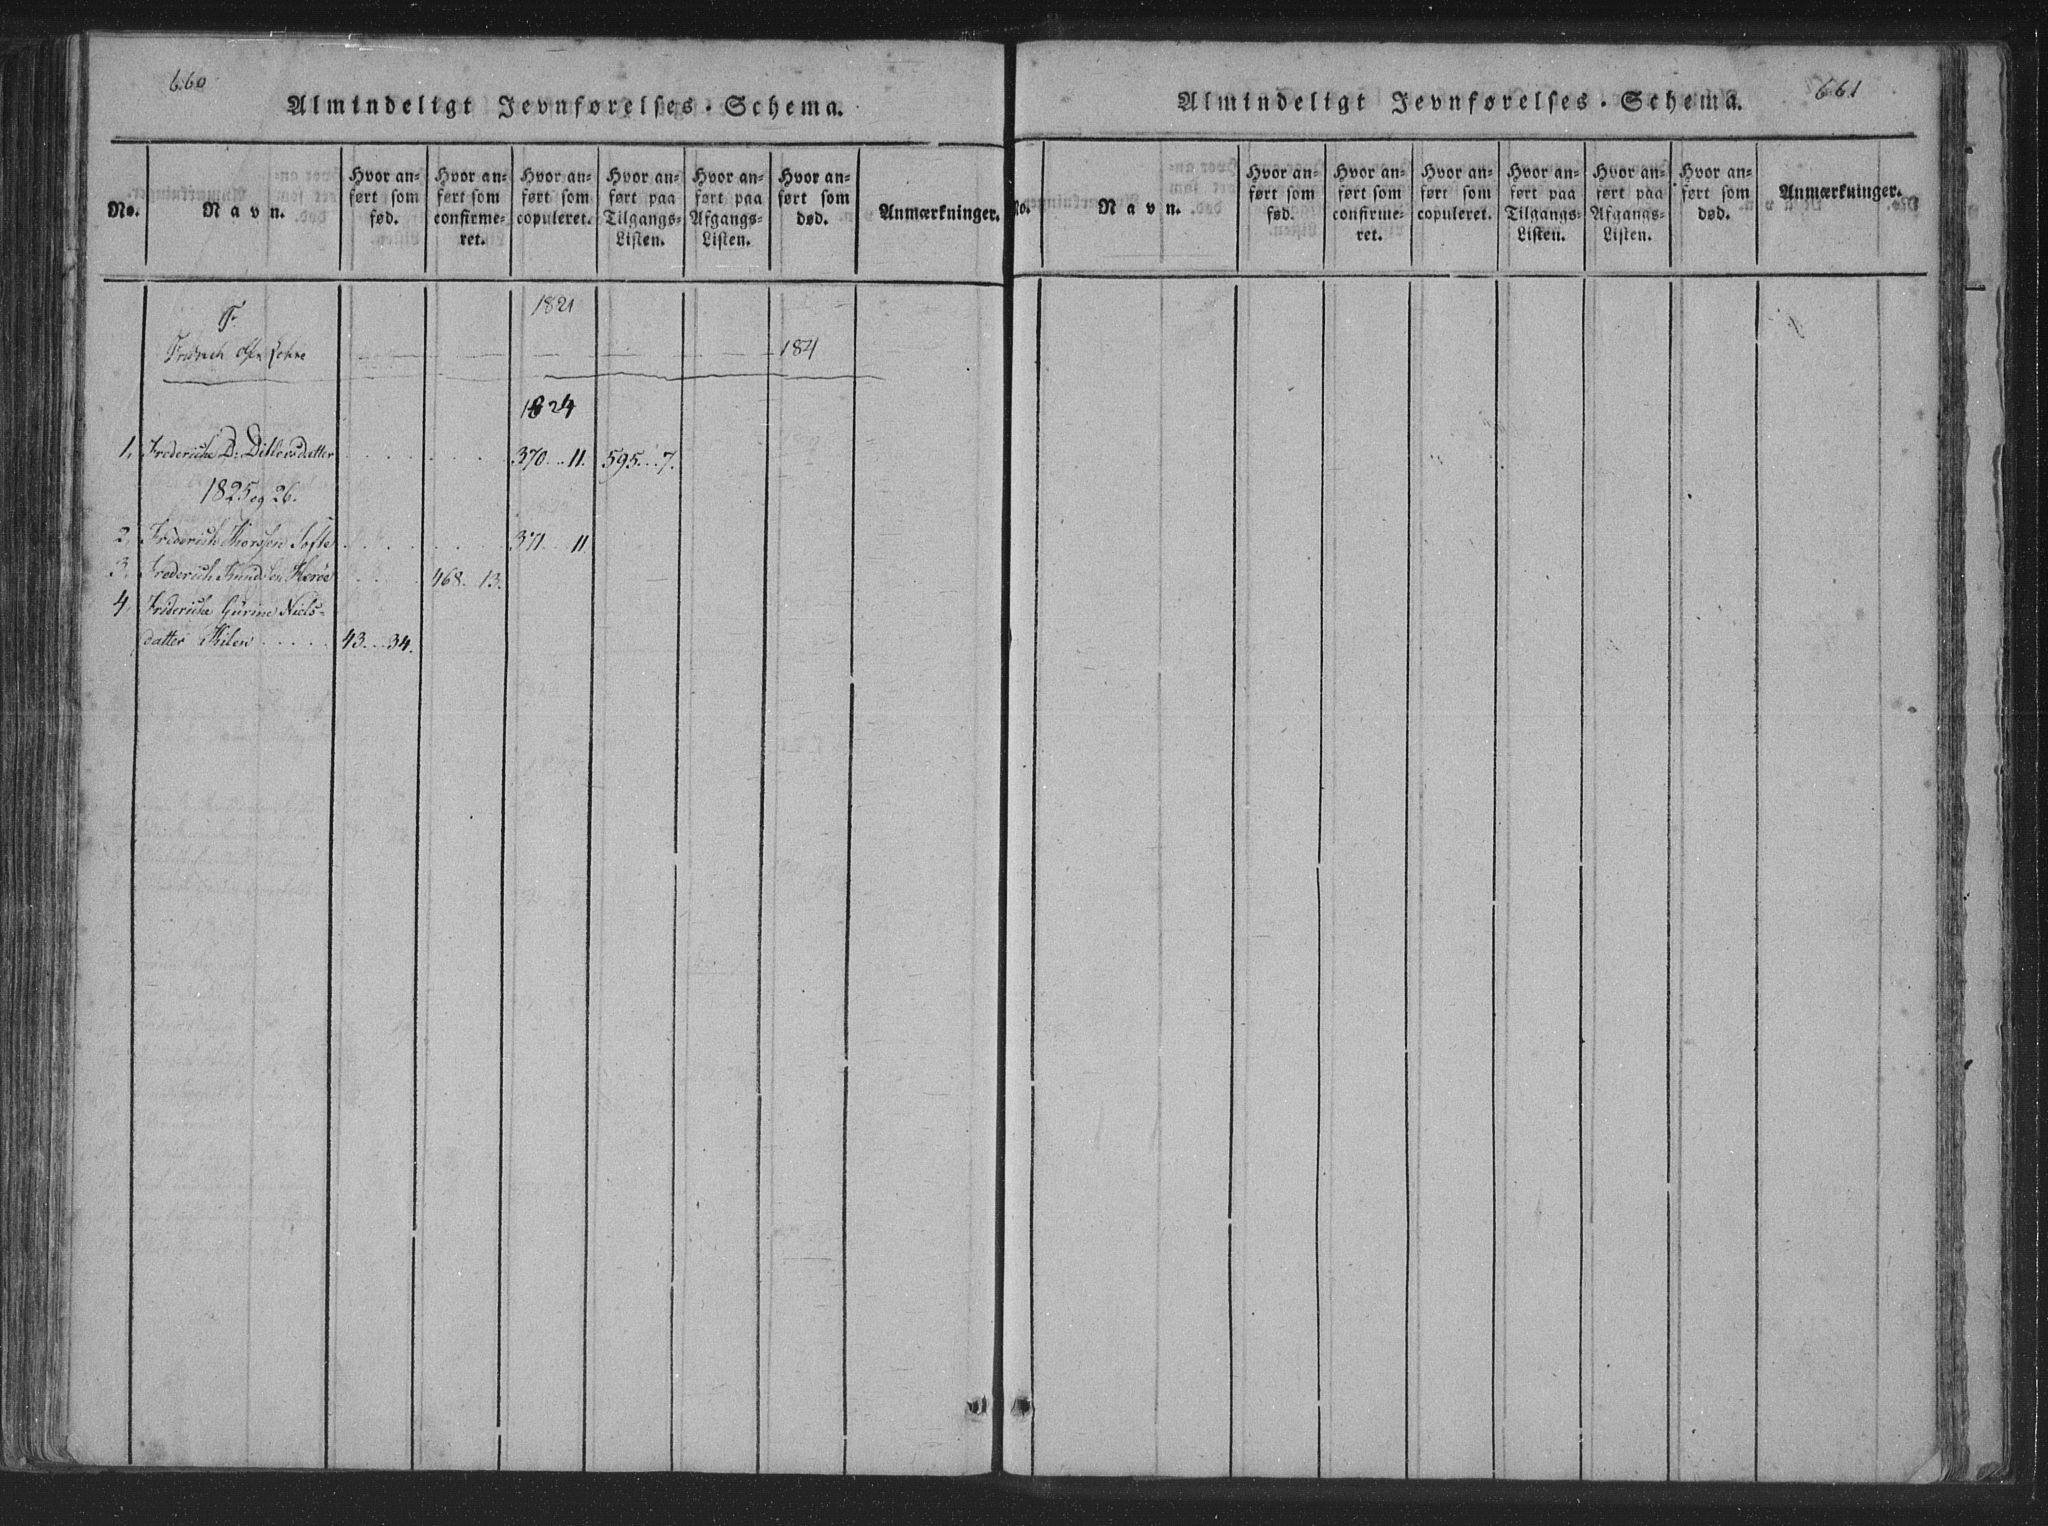 660
Almindeligt Jevnførelses-Schema.
No.
Navn.
Hvor anført som fød.
Hvor anført som confirmeret.
Hvor anført som copuleret.
Hvor anført paa Tilgangs-Listen.
Hvor anført paa Afgangs-Listen.
Hvor anført som død.
Anmærkninger.
F. 1821
184
1824
1, Frederiche D: Ditlevsdatter 370...11. 595...7.
1825 og 26.
2, Friderich Thorssen Tofte 371...11.
3, Frederich Knudsen Herøe 468. 13.
4, Friderica Gurine Niels-
datter Kilen 43...34.
661
Almindeligt Jevnførelses-Schema.
No.
Navn.
Hvor anført som fød.
Hvor anført som confirmeret.
Hvor anført som copuleret.
Hvor anført paa Tilgangs-Listen.
Hvor anført paa Afgangs-Listen.
Hvor anført som død.
Anmærkninger.